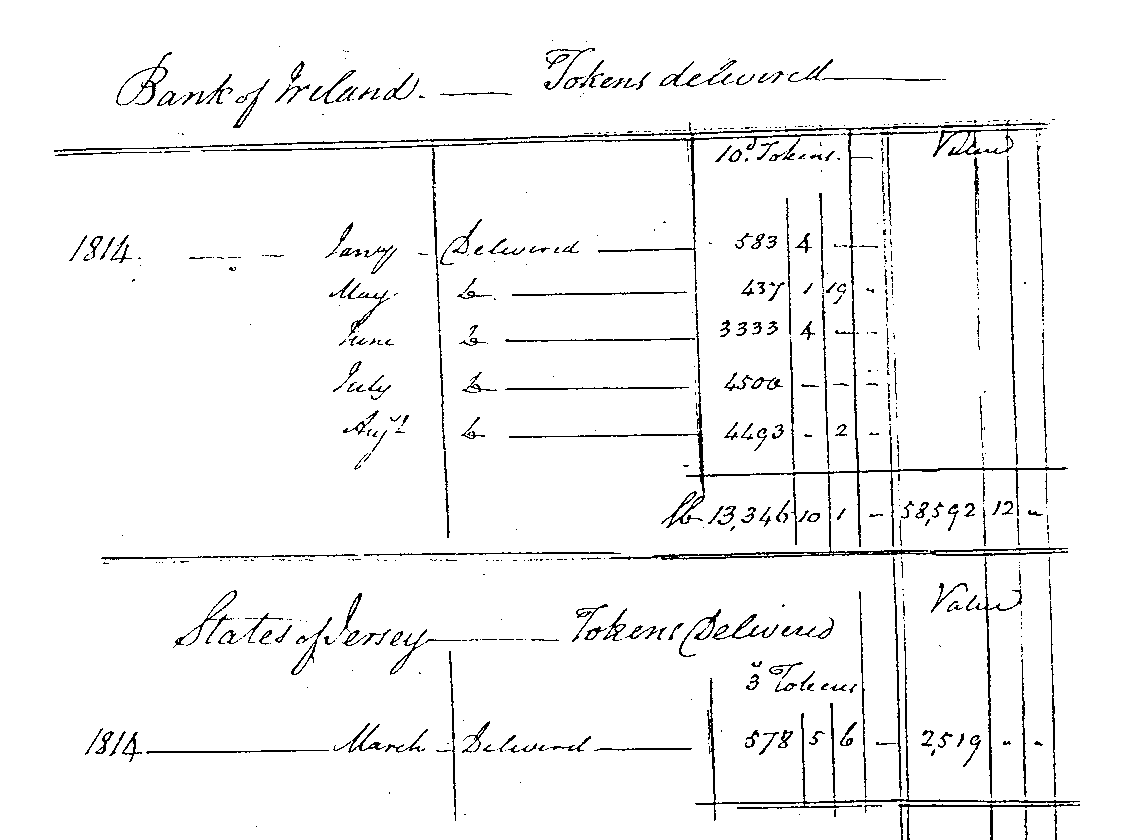 Bank of Ireland. — Tokens delivered —
10d. Tokens. — Value
1814. — Janry - Delivered — 583 4 — —
May. Do. — 437 1 19 -
June Do — 3333 4 — —
July Do — 4500 - - -
Augt Do — 4493 - 2 -
lb 13,346 10 1 - 58,592 12 -
Value
States of Jersey — Tokens Delivered
3s Tokens
1814 — March - Delivered — 578 5 6 — 2,519 - -